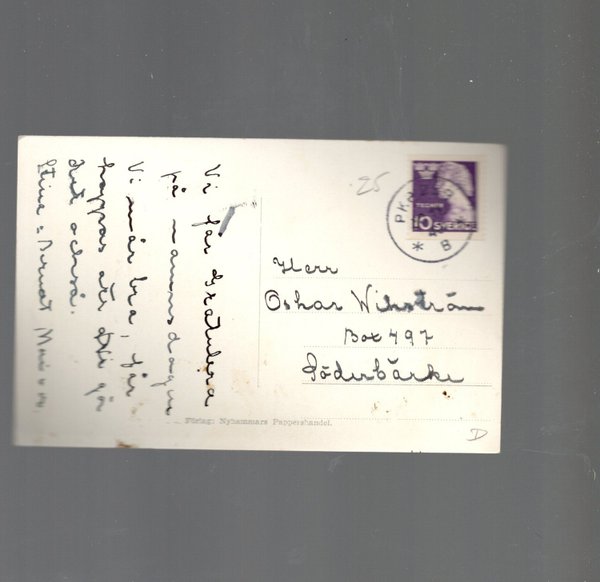 Vi får Gratulera
på namnsdagen
Vi mår bra, får
hoppas att Ni gör
det också.
Stina o Bernat
25
TEGNÉR
10 SVERIGE
PK
8
Herr
Oskar Wikström
Box 497
Söderbärke
Förlag: Nyhammars Pappershandel.
D